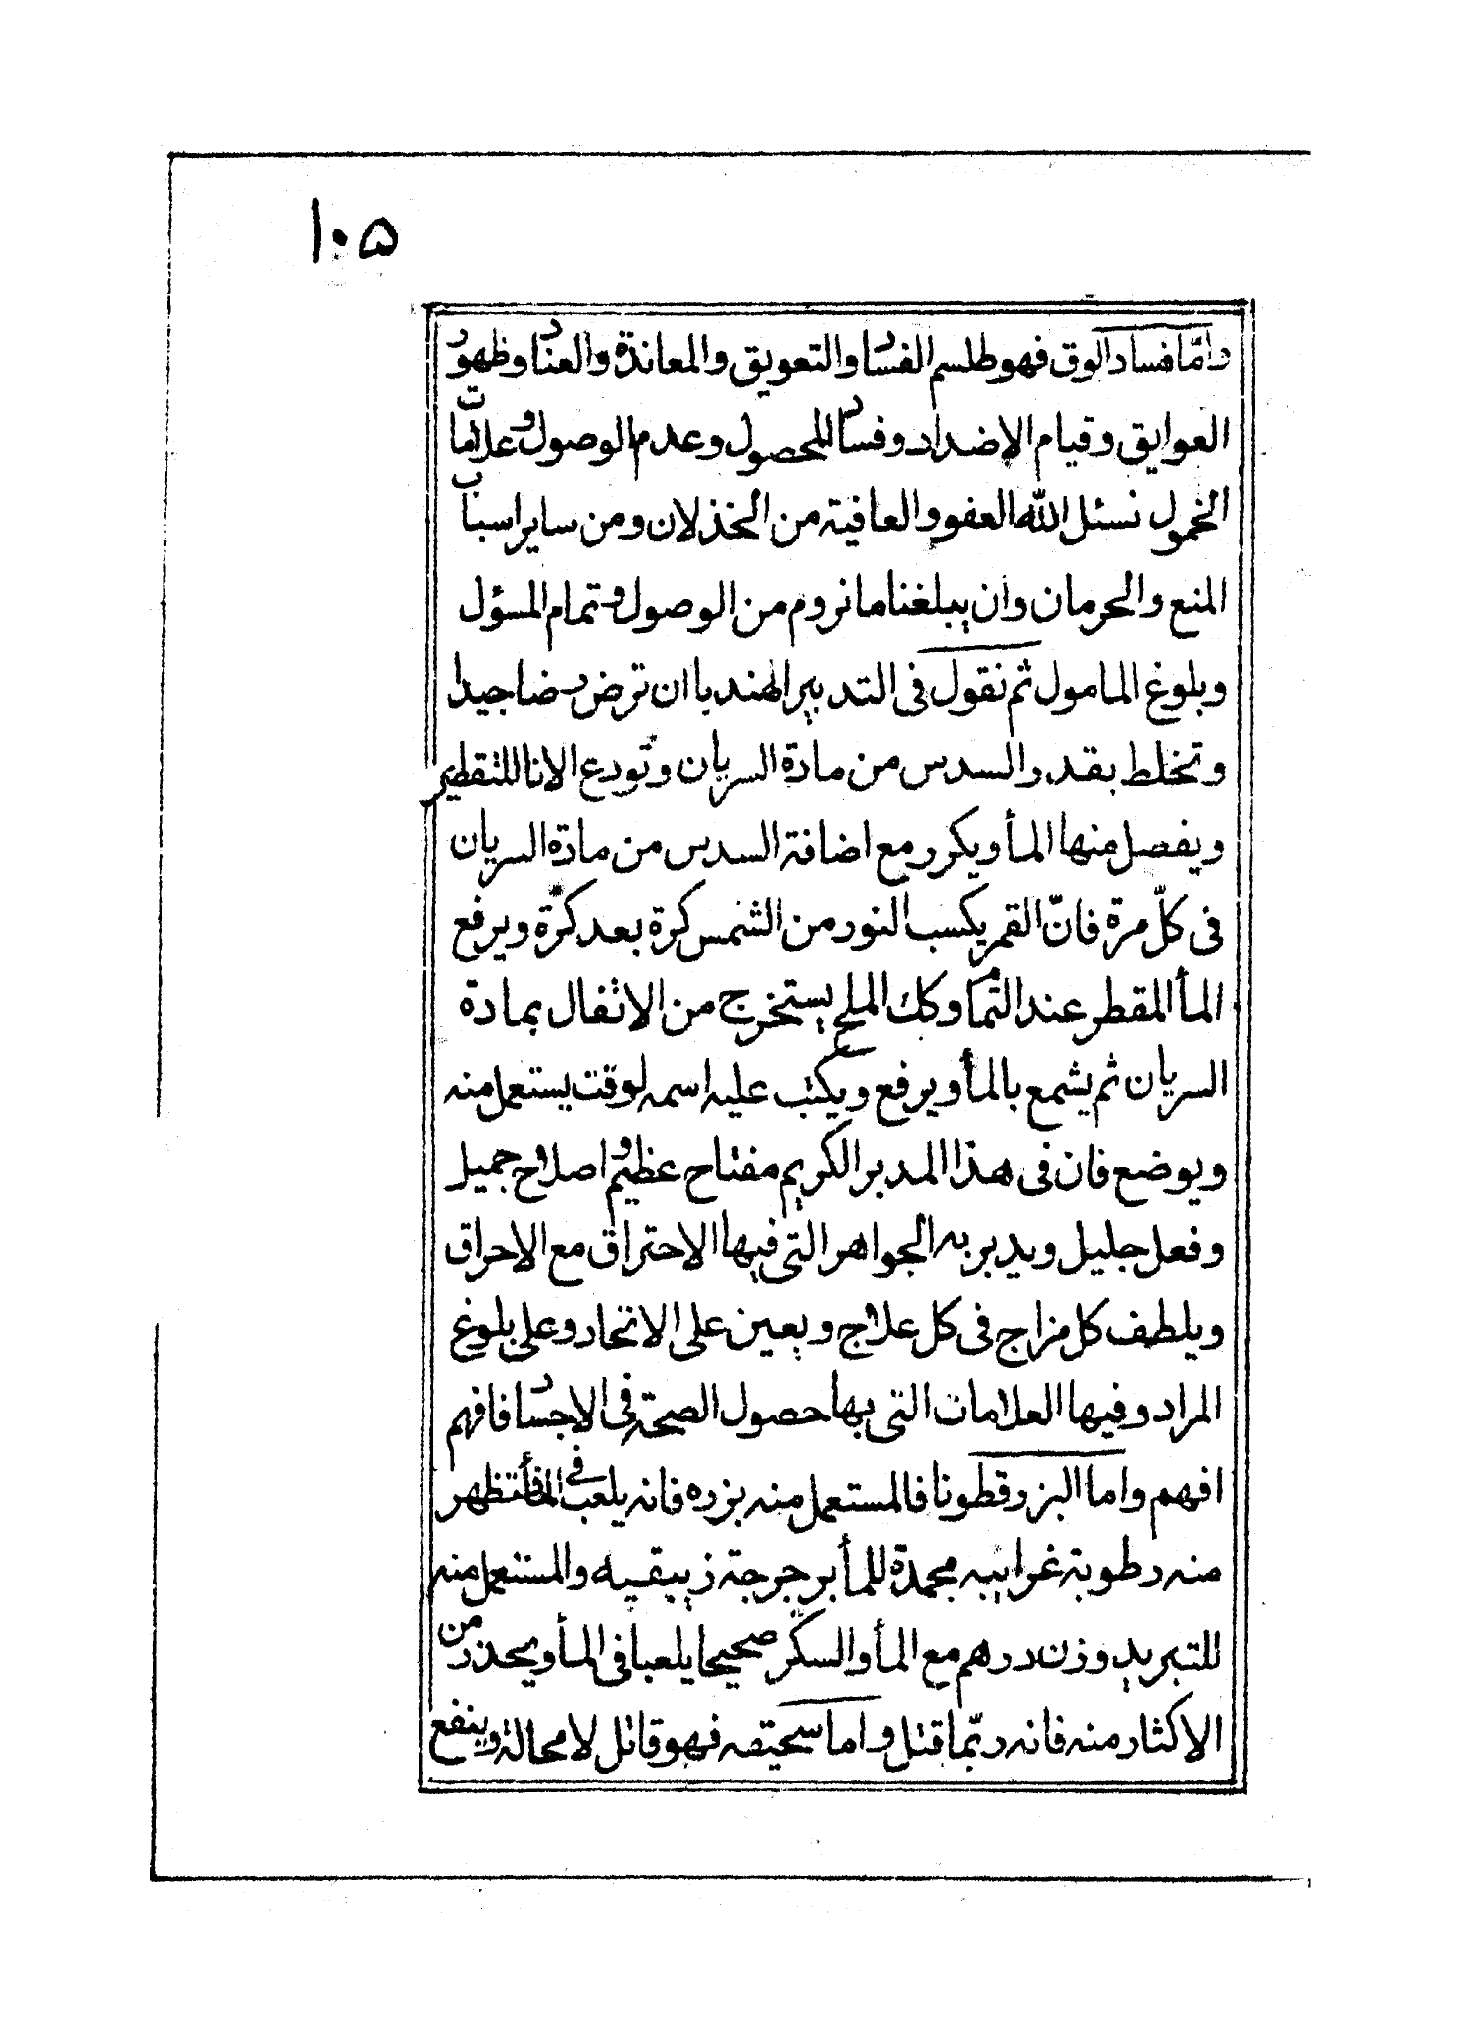 ١٠۵
وامّا فساد الوق فهو طلسم الفساد والتعويق والمعاندة والعناد وظهور
العوايق وقيام الاضداد وفساد المحصول وعدم الوصول وعلامات
الخمول نسئل الله العفو والعافية من الخذلان ومن ساير اسباب
المنع والحرمان وان يبلغنا ما نروم من الوصول وتمام المسؤل
وبلوغ المامول ثم نقول فى التدبير الهندبا ان ترض رضا جيدا
وتخلط بقدر السدس من مادة السريان وتودع الانا للتقطير
ويفصل منها المأ ويكرر مع اضافة السدس من مادة السريان
فى كلّ مرة فانّ القمر يكسب النور من الشمس كرة بعد كرّة ويرفع
المأ المقطر عند التمام وكك الملح يستخرج من الاثفال بمادة
السريان ثم يشمع بالمأ ويرفع ويكتب عليه اسمه لوقت يستعمل منه
ويوضع فان فى هذا المدبر الكريم مفتاح عظيم واصلاح جميل
وفعل جليل ويدبر به الجواهر التى فيها الاحتراق مع الاحراق
ويلطف كل مزاج فى كل علاج ويعين على الاتحاد وعلى بلوغ
المراد وفيها العلامات التى بها حصول الصحة فى الاجساد فافهم
افهم واما البزرقطونا فالمستعمل منه بزره فانه يلعب فى المأ فتظهر
منه رطوبة غرابيبه مجمدة للمأ برجرجة زيبقيه والمستعمل منه
للتبريد وزن درهم مع المأ والسكّر صحيحا يلعبا فى المأ ويحذر من
الاكثار منه فانه ربّما قتل واما سحيقه فهو قاتل لا محالة وينفع